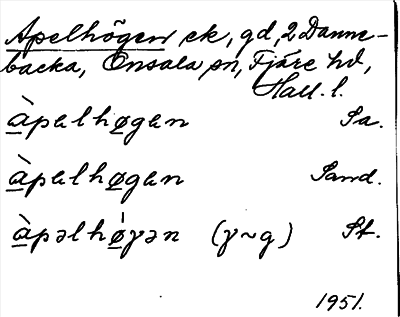 Apelhögen ek, gd, 2 Danne-
backa, Onsala sn, Fjäre hd,
Hall. l.
àpelhøgen Sa.
àpelhøgen Sand.
àpəlhǿγən (γ~g) St.
1951.